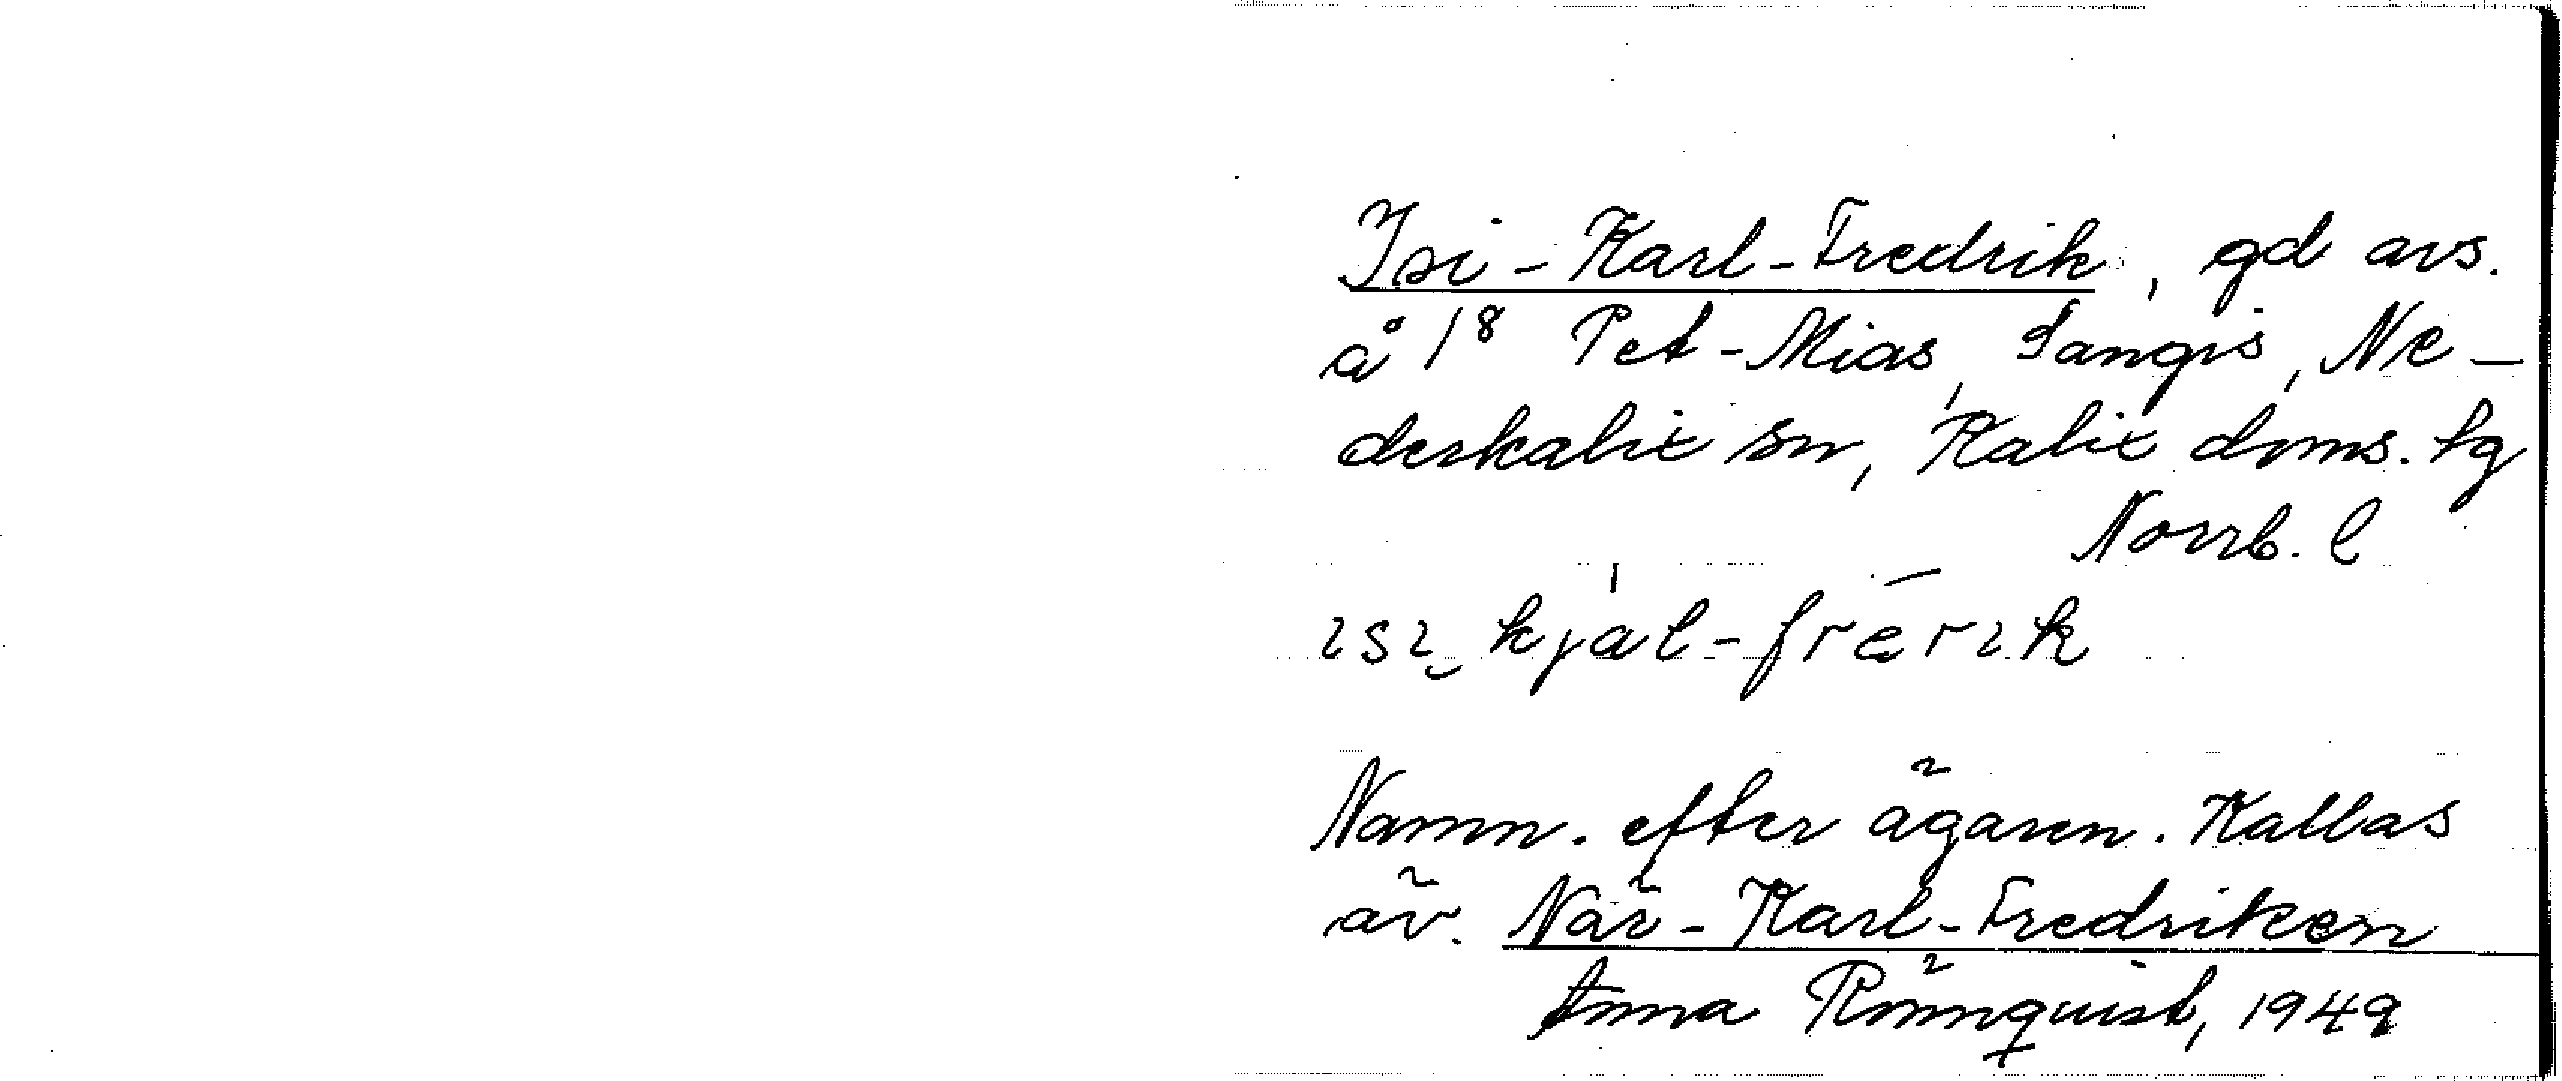 Isi-Karl-Fredrik, gd avs.
å 1⁸ Pet-Mias, Sangis, Ne-
derkalix sn, Kalix doms. tg
Norrb. l
ısı kjal-frerık
Namn. efter ägaren. Kallas
äv. När-Karl-Fredriken
Anna Rönnquist, 1949